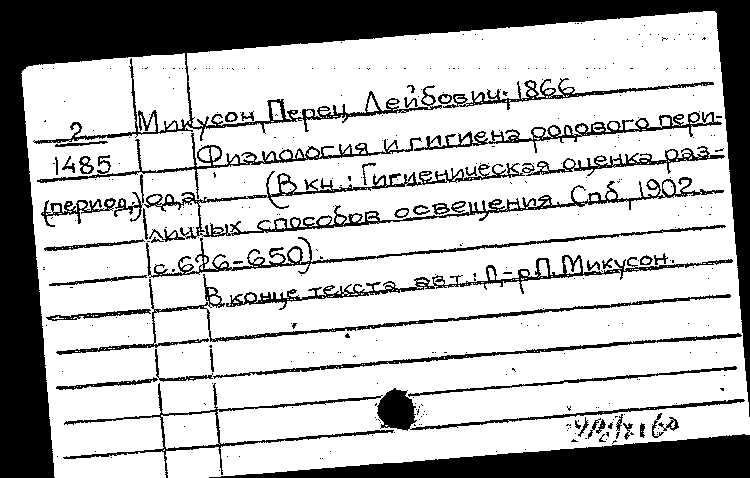 2
1485
(период.)
Микусон, Перец Лейбович; 1866
Физиология и гигиена родового пери-
ода. (В кн.: Гигиеническая оценка раз-
личных способов освещения. Спб, 1902.
с. 626-650).
В конце текста авт.: Д-р П. Микусон.